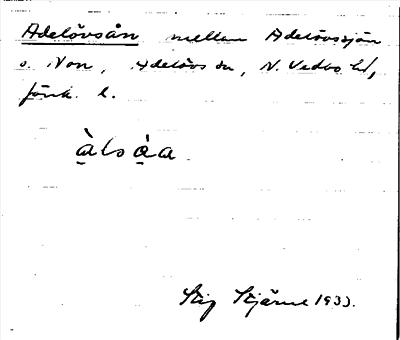 Adelövsån mellan Adelövssjön
o. Non, Adelövs sn, N. Vedbo hd,
Jönk. l.
àlsàa
Stig Stjärne 1933.